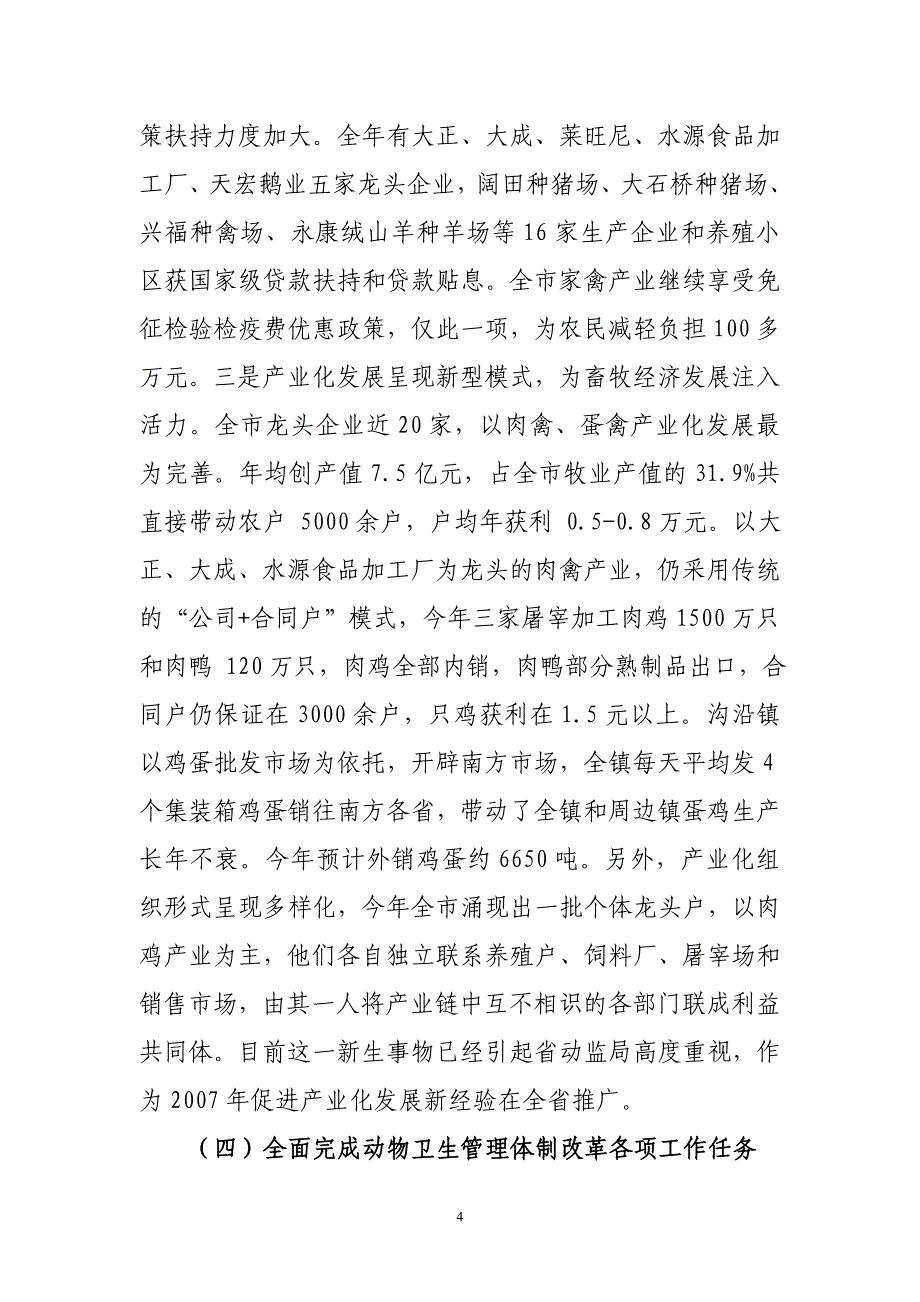 策扶持力度加大。全年有大正、大成、莱旺尼、水源食品加
工厂、天宏鹅业五家龙头企业，阔田种猪场、大石桥种猪场、
兴福种禽场、永康绒山羊种羊场等 16 家生产企业和养殖小
区获国家级贷款扶持和贷款贴息。全市家禽产业继续享受免
征检验检疫费优惠政策，仅此一项，为农民减轻负担 100 多
万元。三是产业化发展呈现新型模式，为畜牧经济发展注入
活力。全市龙头企业近 20 家，以肉禽、蛋禽产业化发展最
为完善。年均创产值 7.5 亿元，占全市牧业产值的 31.9%共
直接带动农户 5000 余户，户均年获利 0.5-0.8 万元。以大
正、大成、水源食品加工厂为龙头的肉禽产业，仍采用传统
的“公司+合同户”模式，今年三家屠宰加工肉鸡 1500 万只
和肉鸭 120 万只，肉鸡全部内销，肉鸭部分熟制品出口，合
同户仍保证在 3000 余户，只鸡获利在 1.5 元以上。沟沿镇
以鸡蛋批发市场为依托，开辟南方市场，全镇每天平均发 4
个集装箱鸡蛋销往南方各省，带动了全镇和周边镇蛋鸡生产
长年不衰。今年预计外销鸡蛋约 6650 吨。另外，产业化组
织形式呈现多样化，今年全市涌现出一批个体龙头户，以肉
鸡产业为主，他们各自独立联系养殖户、饲料厂、屠宰场和
销售市场，由其一人将产业链中互不相识的各部门联成利益
共同体。目前这一新生事物已经引起省动监局高度重视，作
为 2007 年促进产业化发展新经验在全省推广。
（四）全面完成动物卫生管理体制改革各项工作任务
4